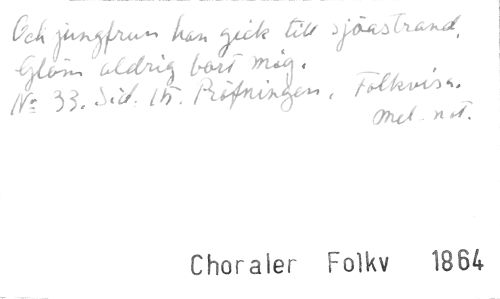 Och jungfrun han gick till sjöastrand,
Glöm aldrig bort mig.
No 33. Sid. 15. Pröfningen. Folkvisa.
mel. not.
Choraler Folkv 1864